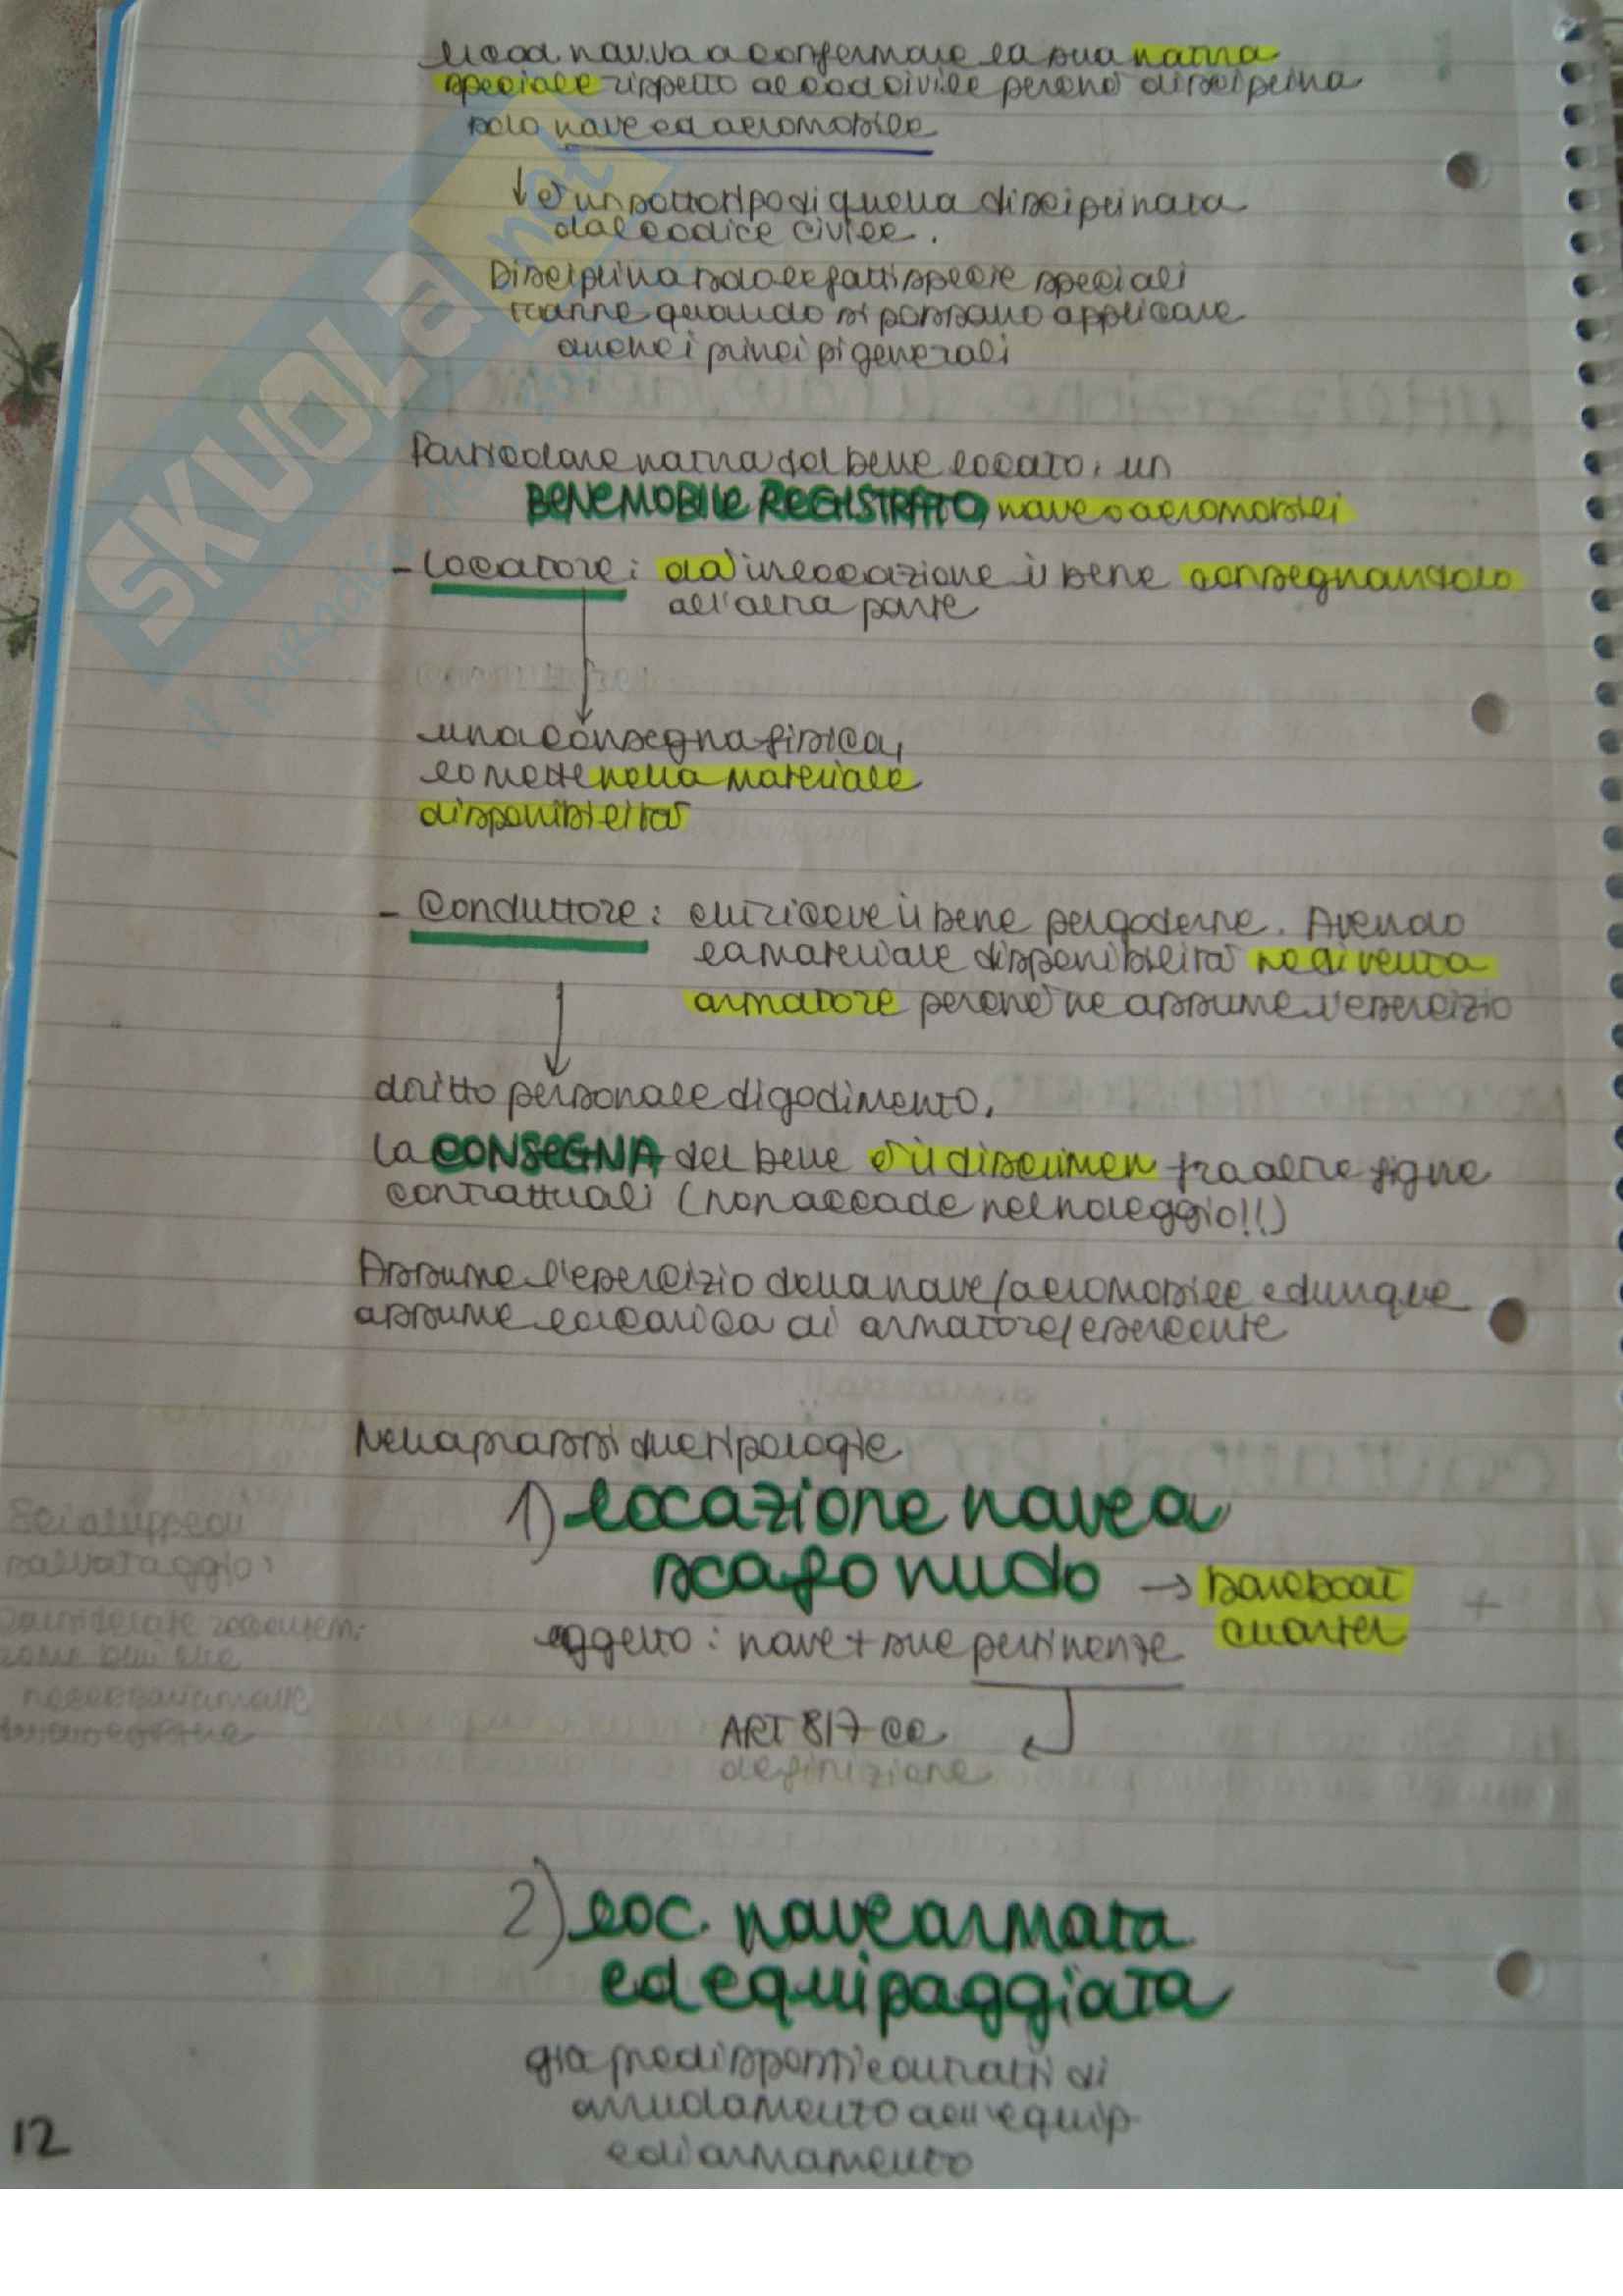 il cod nav. va a confermare la sua natura
speciale rispetto al cod civile perché disciplina
solo nave ed aeromobile
↓ è un sottotipo di quella disciplinata
dal codice civile.
Disciplina solo le fattispecie speciali
tranne quando si possano applicare
anche i principi generali
Particolare natura del bene locato, un
BENE MOBILE REGISTRATO, nave o aeromobili
- Locatore: dà in locazione il bene consegnandolo
all'altra parte
una consegna fisica,
lo mette nella materiale
disponibilità
- Conduttore: chi riceve il bene per goderne. Avendo
la materiale disponibilità ne diventa
armatore perché ne assume l'esercizio
diritto personale di godimento.
La CONSEGNA del bene è il discrimen fra altre figure
contrattuali (non accade nel noleggio!!)
Assume l'esercizio della nave/aeromobile e dunque
assume la carica di armatore/esercente
Nella prassi due tipologie
1) locazione nave a
scafo nudo → bareboat
charter
oggetto: nave + sue pertinenze
ART 817 cc
definizione
Scialuppe di
salvataggio:
considerate
necessariamente
2) loc. nave armata
ed equipaggiata
già predisposti contratti di
arruolamento dell'equip
e di armamento
12
SKUOLA.net
il paradiso dello